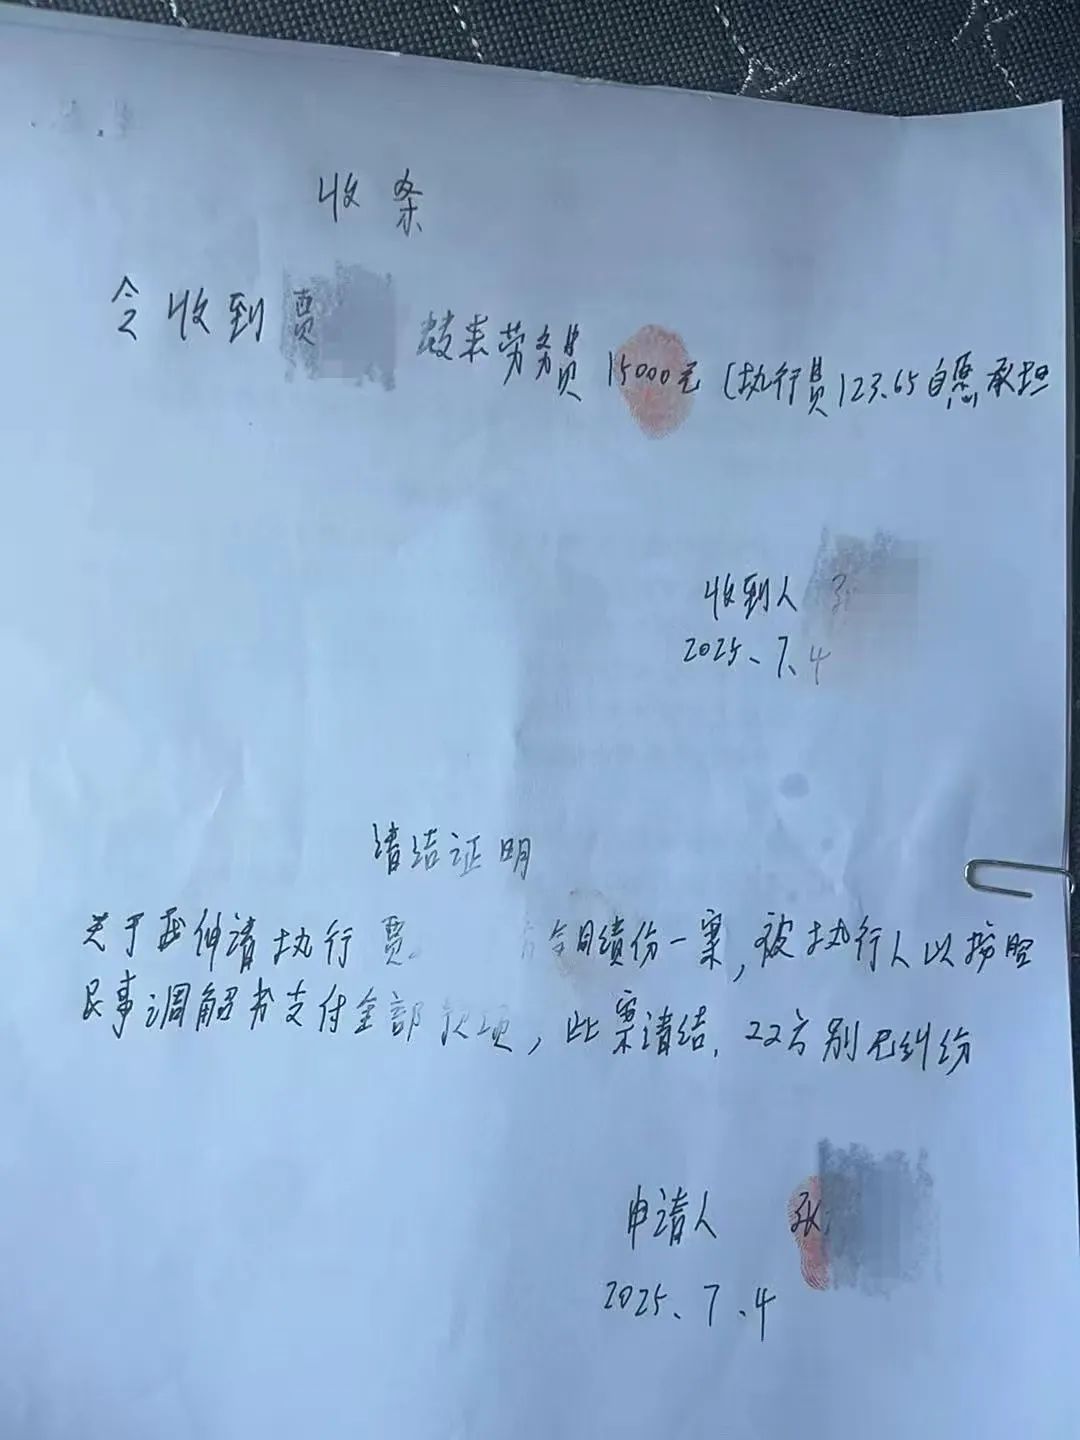 收条
今收到贾 劳务费 15000元 (执行费123.65自愿承担
收到人
2025.7.4
清结证明
关于我申请执行贾 一案,被执行人以按照
民事调解书支付全部款项,此案清结,双方别无纠纷
申请人 张
2025.7.4